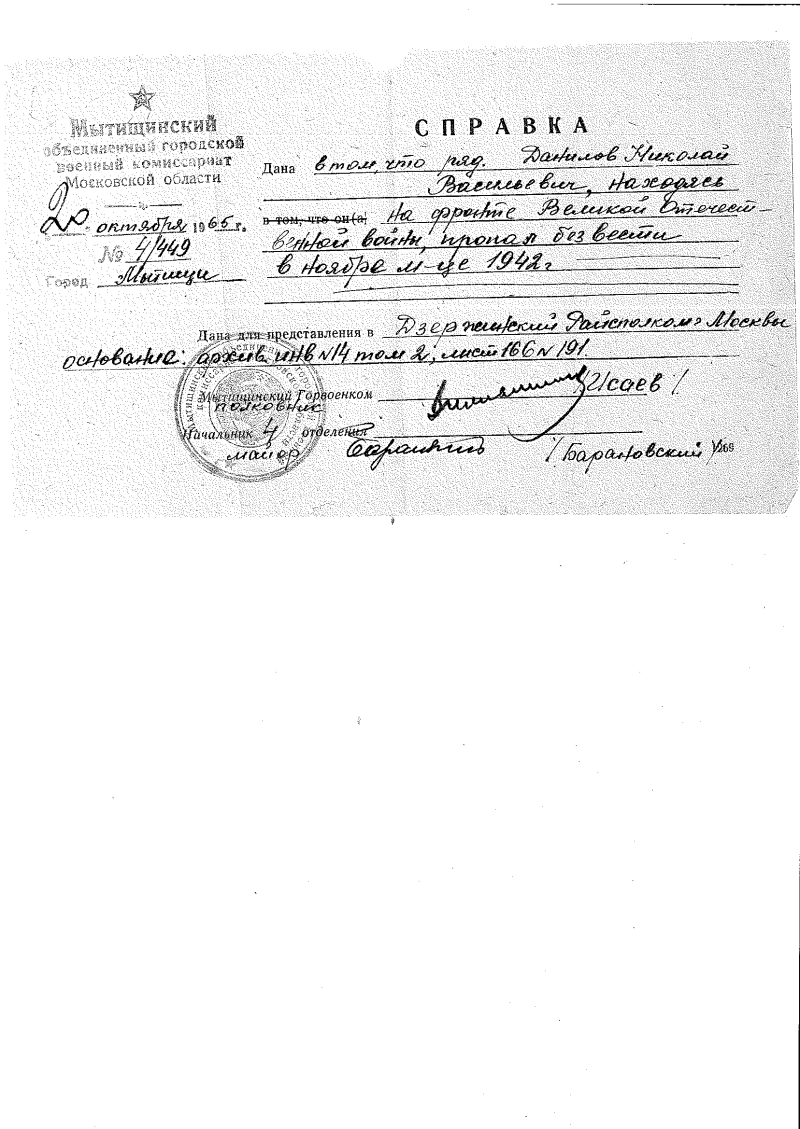 Мытищинский
объединенный городской
военный комиссариат
Московской области
20 октября 1965 г.
№ 4/449
Город Мытищи
СПРАВКА
Дана в том, что ряд. Данилов Николай
Васильевич, находясь
в том, что он(а) на фронте Великой Отечест-
венной войны, пропал без вести
в ноябре м-це 1942 г
Дана для представления в Дзержинский Райсполком г Москвы
основание: архив инв N 14 том 2, лист 166 N 191.
Мытищинский Горвоенком /Исаев/
полковник
Начальник 4 отделения
майор /Барановский/